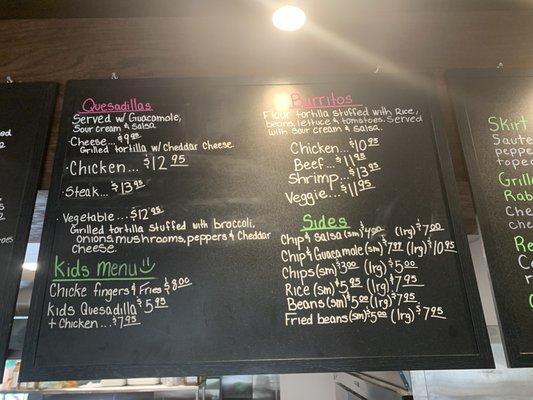 Quesadillas
Served w/ Guacamole,
Sour cream & salsa
Cheese... $9.95
Grilled tortilla w/ cheddar cheese.
Chicken... $12.95
Steak... $13.95
Vegetable... $12.95
Grilled tortilla stuffed with broccoli,
onions, mushrooms, peppers & cheddar
cheese.
Kids Menu
Chicke fingers & Fries $8.00
Kids Quesadilla $5.95
+ Chicken... $7.95
Burritos
Flour tortilla stuffed with Rice,
beans, lettuce & tomatoes. Served
with sour cream & salsa.
Chicken... $10.95
Beef... $11.95
Shrimp... $13.95
Veggie... $11.95
Sides
Chip & salsa (sm) $4.00 (lrg) $7.00
Chip & Guacamole (sm) (lrg) $10.95
Chips (sm) $3.00 (lrg) $5.00
Rice (sm) $5.95 (lrg) $7.95
Beans (sm) $5.00 (lrg) $7.95
Fried beans (sm) $5.00 (lrg) $7.95
Skirt
Saute
peppe
tope
Grill
Rab
che
che
Re